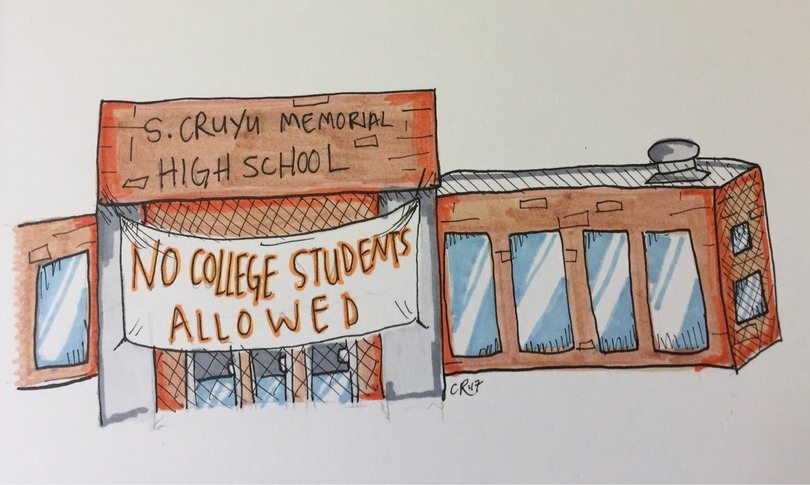 S. CRUYU MEMORIAL
HIGH SCHOOL
NO COLLEGE STUDENTS
ALLOWED
CR '17